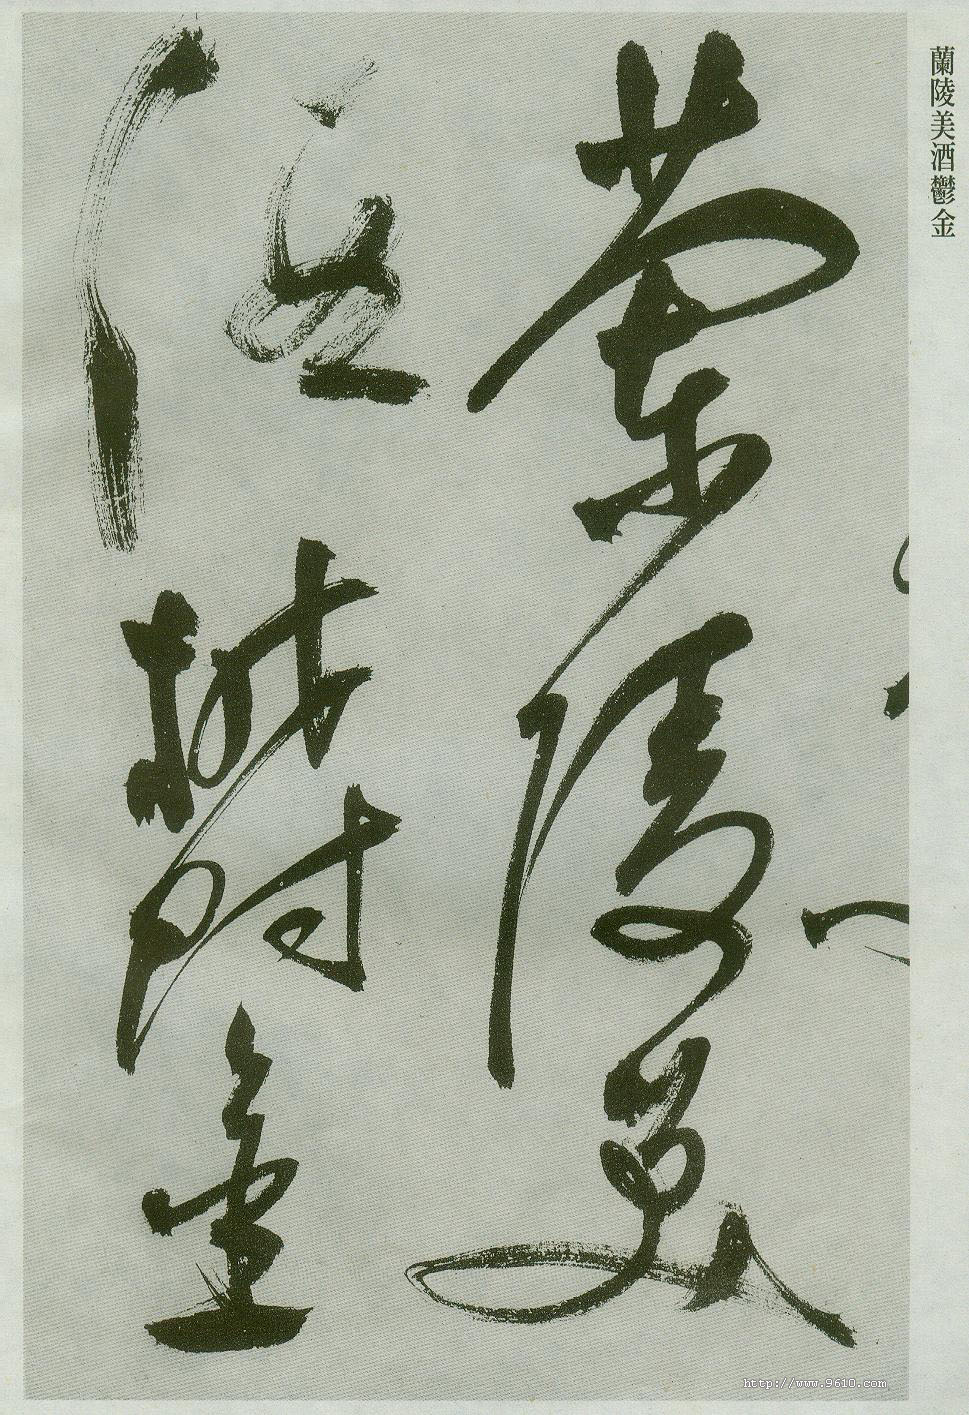 蘭陵美酒鬱金
蘭陵美
酒鬱金
http://www.9610.com